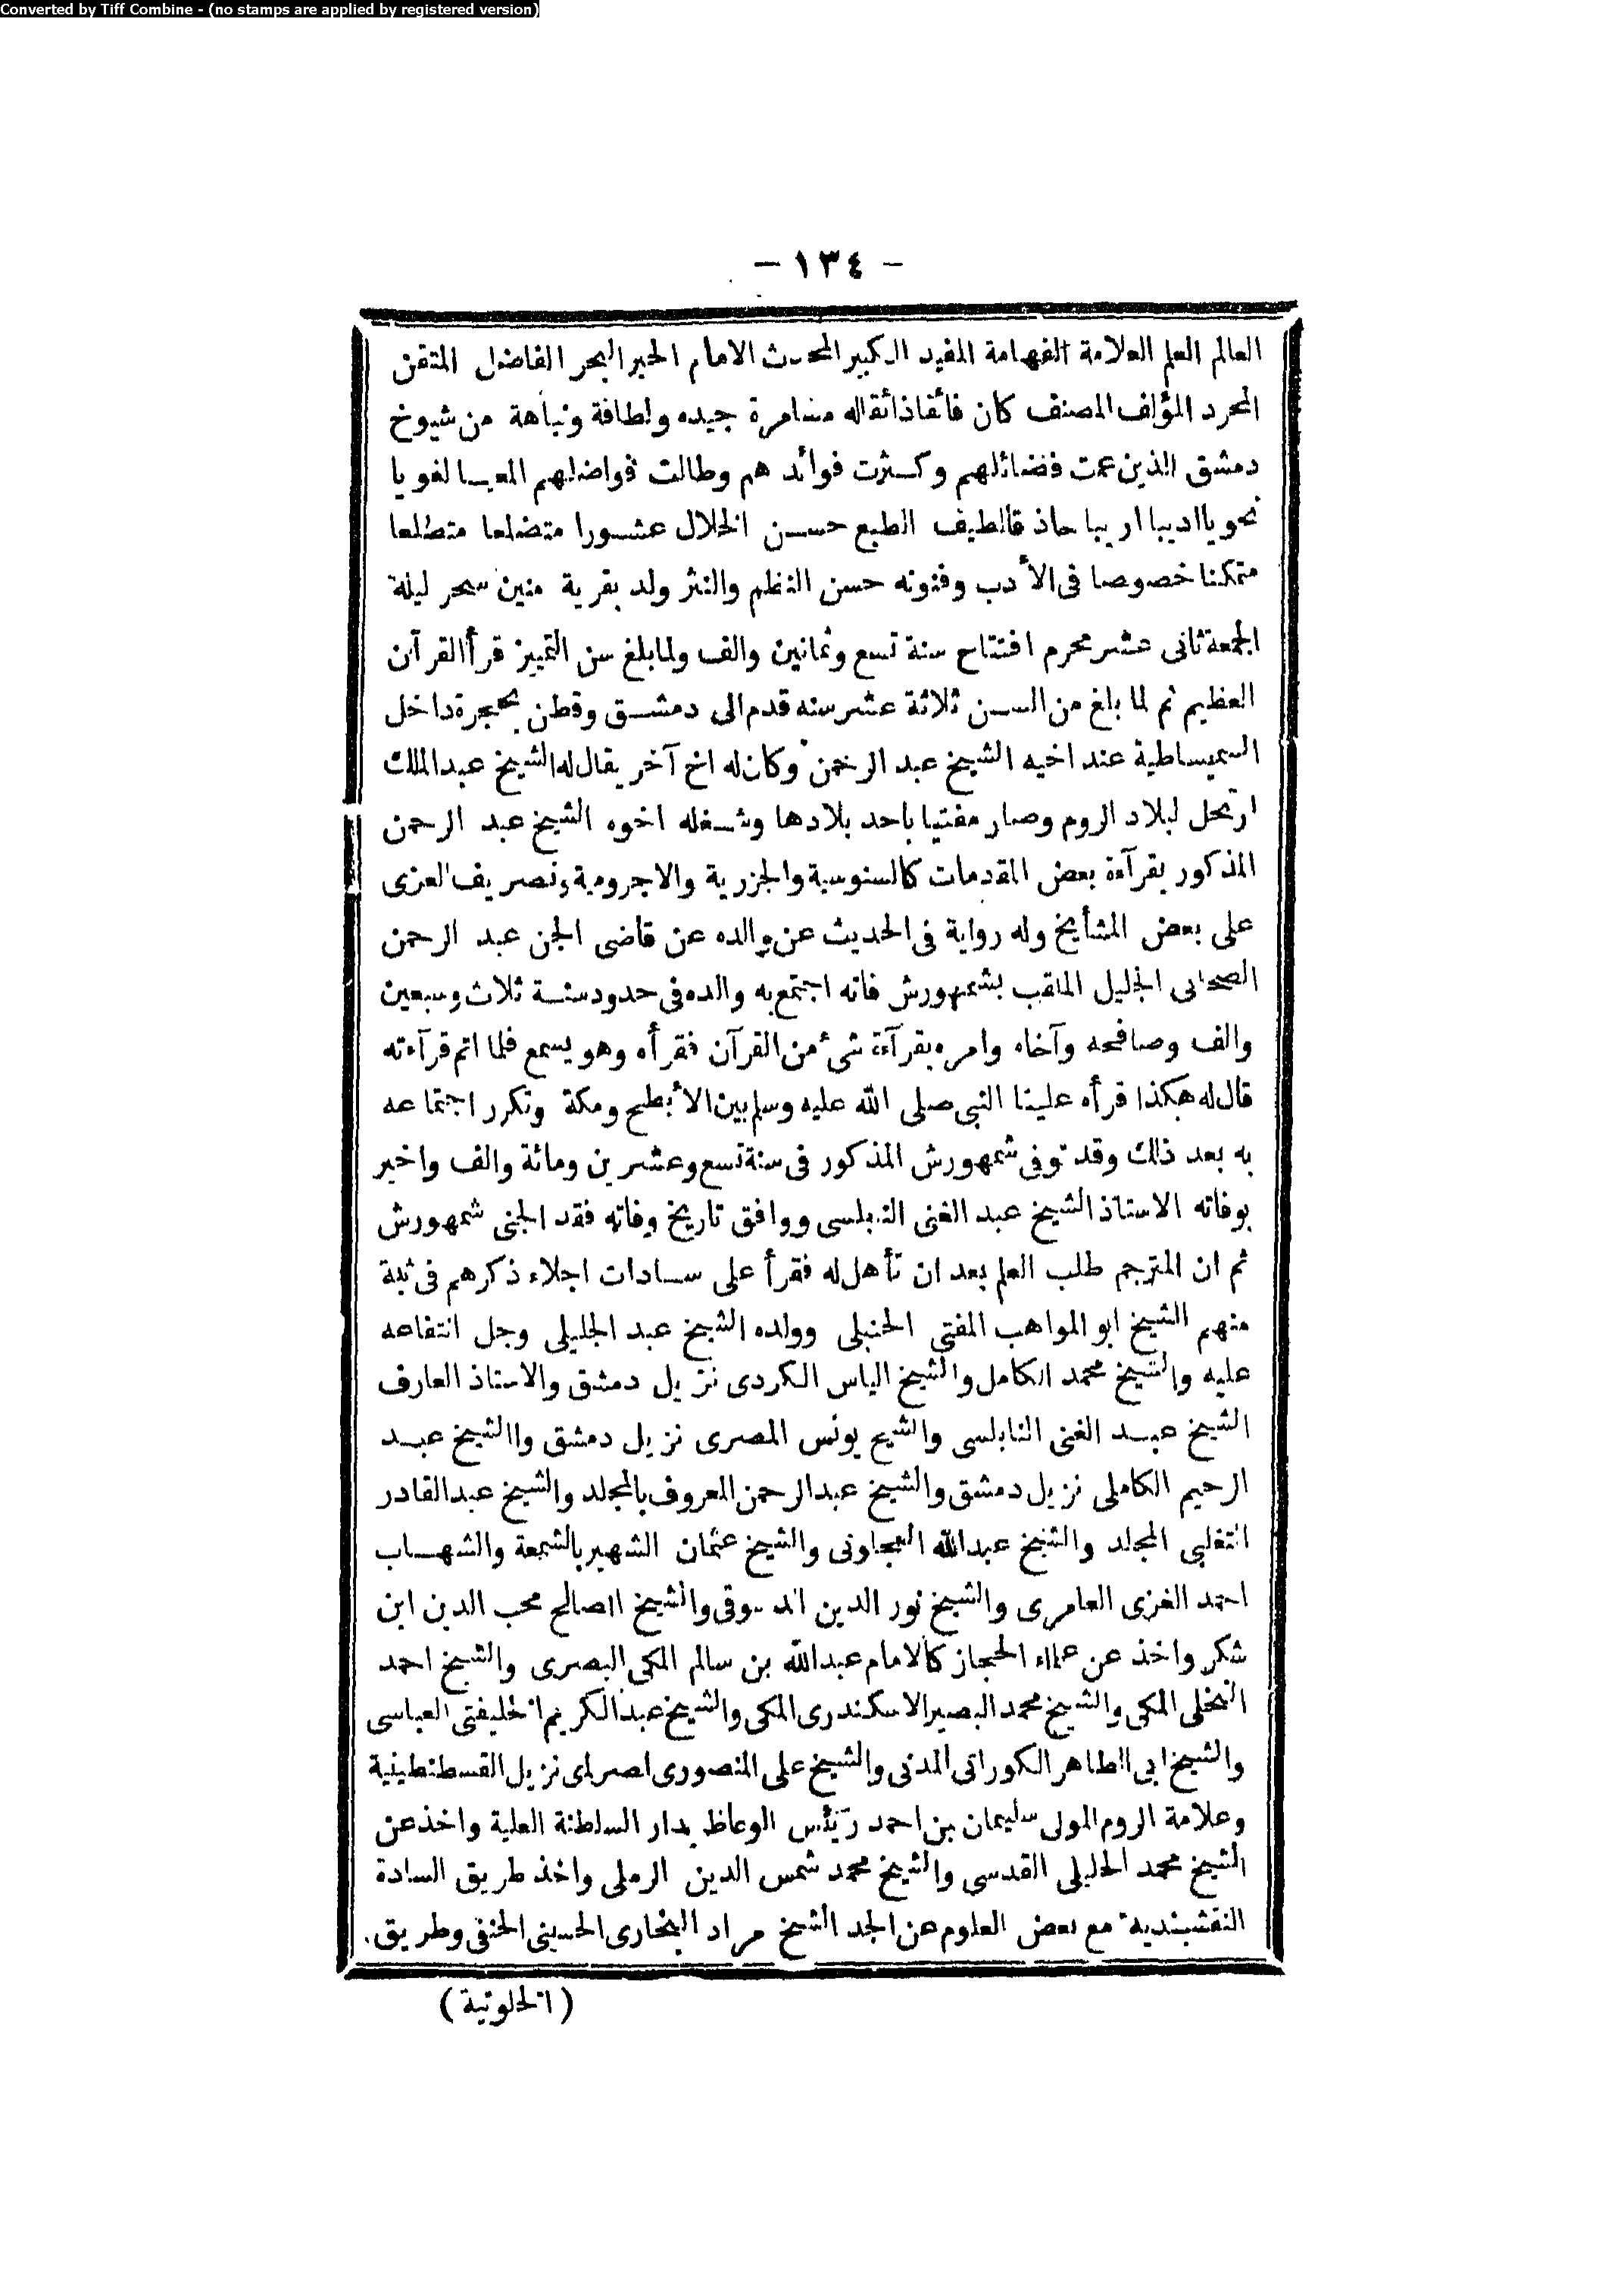 Converted by Tiff Combine - (no stamps are applied by registered version)
- ١٣٤ -
العالم العلم العلامة الفهامة المفيد الكبير المحدث الامام الحبر البحر الفاضل المتقن
المحرد المؤلف المصنف كان فائقا ذا ثقاله مسامرة جيده ولطافة ونباهة من شيوخ
دمشق الذين عمت فضائلهم وكثرت فوائد هم وطالت فواضلهم المعيا لغويا
نحويا اديبا اريبا حاذقا لطيف الطبع حسن الخلال عشورا متضلعا متطلعا
متمكنا خصوصا فى الأدب وفنونه حسن النظم والنثر ولد بقرية منين سحر ليلة
الجمعة ثانى عشر محرم افتتاح سنة تسع وثمانين والف ولما بلغ سن التمييز قرأ القرآن
العظيم ثم لما بلغ من السن ثلاثة عشر سنه قدم الى دمشق وقطن بحجرة داخل
السميساطية عند اخيه الشيخ عبد الرحمن وكان له اخ آخر يقال له الشيخ عبد الملك
ارتحل لبلاد الروم وصار مفتيا باحد بلادها وشغله اخوه الشيخ عبد الرحمن
المذكور بقرآءة بعض المقدمات كالسنوسية والجزرية والاجرومية وتصريف العزى
على بعض المشأيخ وله رواية فى الحديث عن والده عن قاضى الجن عبد الرحمن
الصحابى الجليل الملقب بشمهورش فانه اجتمع به والده فى حدود سنة ثلاث وسبعين
والف وصافحه وآخاه وامره بقرآءة شئ من القرآن فقرأه وهو يسمع فلما اتم قرآءته
قال له هكذا قرأه علينا النبى صلى الله عليه وسلم بين الأبطح ومكة وتكرر اجتماعه
به بعد ذلك وقد توفى شمهورش المذكور فى سنة تسع وعشرين ومائة والف واخبر
بوفاته الاستاذ الشيخ عبد الغنى النابلسى ووافق تاريخ وفاته فقد الجنى شمهورش
ثم ان المترجم طلب العلم بعد ان تأهل له فقرأ على سادات اجلاء ذكرهم فى ثبة
منهم الشيخ ابو المواهب المفتى الحنبلى وولده الشيخ عبد الجليلى وجل انتفاعه
عليه والشيخ محمد الكامل والشيخ الياس الكردى نزيل دمشق والاستاذ العارف
الشيخ عبد الغنى النابلسى والشيح يونس المصرى نزيل دمشق واالشيخ عبد
الرحيم الكاملى نزيل دمشق والشيخ عبد الرحمن المعروف بالمجلد والشيخ عبد القادر
التغلبى المجلد والشيخ عبد الله العجلونى والشيخ عثمان الشهير بالشمعة والشهاب
احمد الغزى العامرى والشيخ نور الدين الدسوقى والشيخ الصالح محب الدين ابن
شكر واخذ عن علماء الحجاز كالامام عبد الله بن سالم المكى البصرى والشيخ احمد
النخلى المكى والشيخ محمد البصير الاسكندرى المكى والشيخ عبد الكريم الخليفتى العباسى
والشيخ ابى الطاهر الكورانى المدنى والشيخ على المنصورى نزيل القسطنطينية
وعلامة الروم المولى سليمان بن احمد رئيس الوعاظ بدار السلطنة العلية واخذ عن
الشيخ محمد الخليلى القدسى والشيخ محمد شمس الدين الرملى واخذ طريق السادة
النقشبندية مع بعض العلوم عن الجد الشيخ مراد البخارى الحسينى الحنفى وطريق
(الخلوتية)